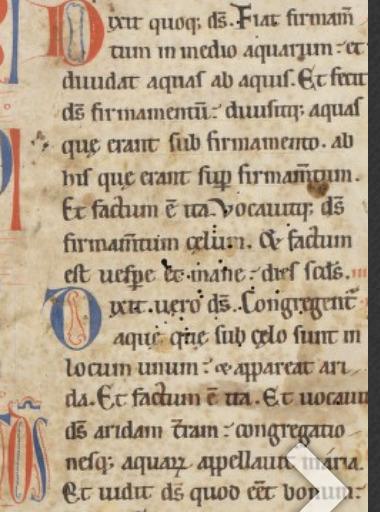 Dixit quoq; ds̄. Fiat firmam̄
tum in medio aquarum : et
diuidat aquas ab aquis. Et fecit
ds̄ firmamentū : diuisitq; aquas
que erant sub firmamento. ab
his que erant sup̄ firmam̄tum.
Et factum ē ita. Vocauitq; ds̄
firmam̄tum celum. & factum
est uespe et mane : dies scds̄.
Dixit. uero ds̄. Congregent̄
aque que sub celo sunt in
locum unum : & appareat ari
da. Et factum ē ita. Et uocauit
ds̄ aridam t̄ram : congregatio
nesq; aquaꝝ appellauit maria.
Et uidit ds̄ quod eēt bonum :